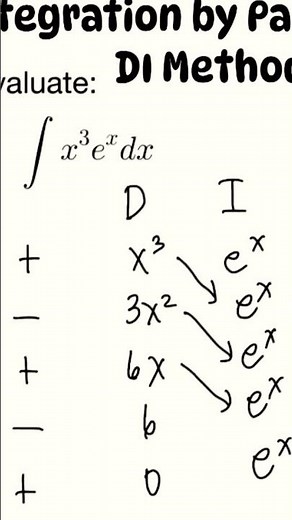 tegration by Pa
DI Metho
valuate:
∫ x³eˣ dx
D I
+ x³ eˣ
− 3x² eˣ
+ 6x eˣ
− 6 eˣ
+ 0 eˣ